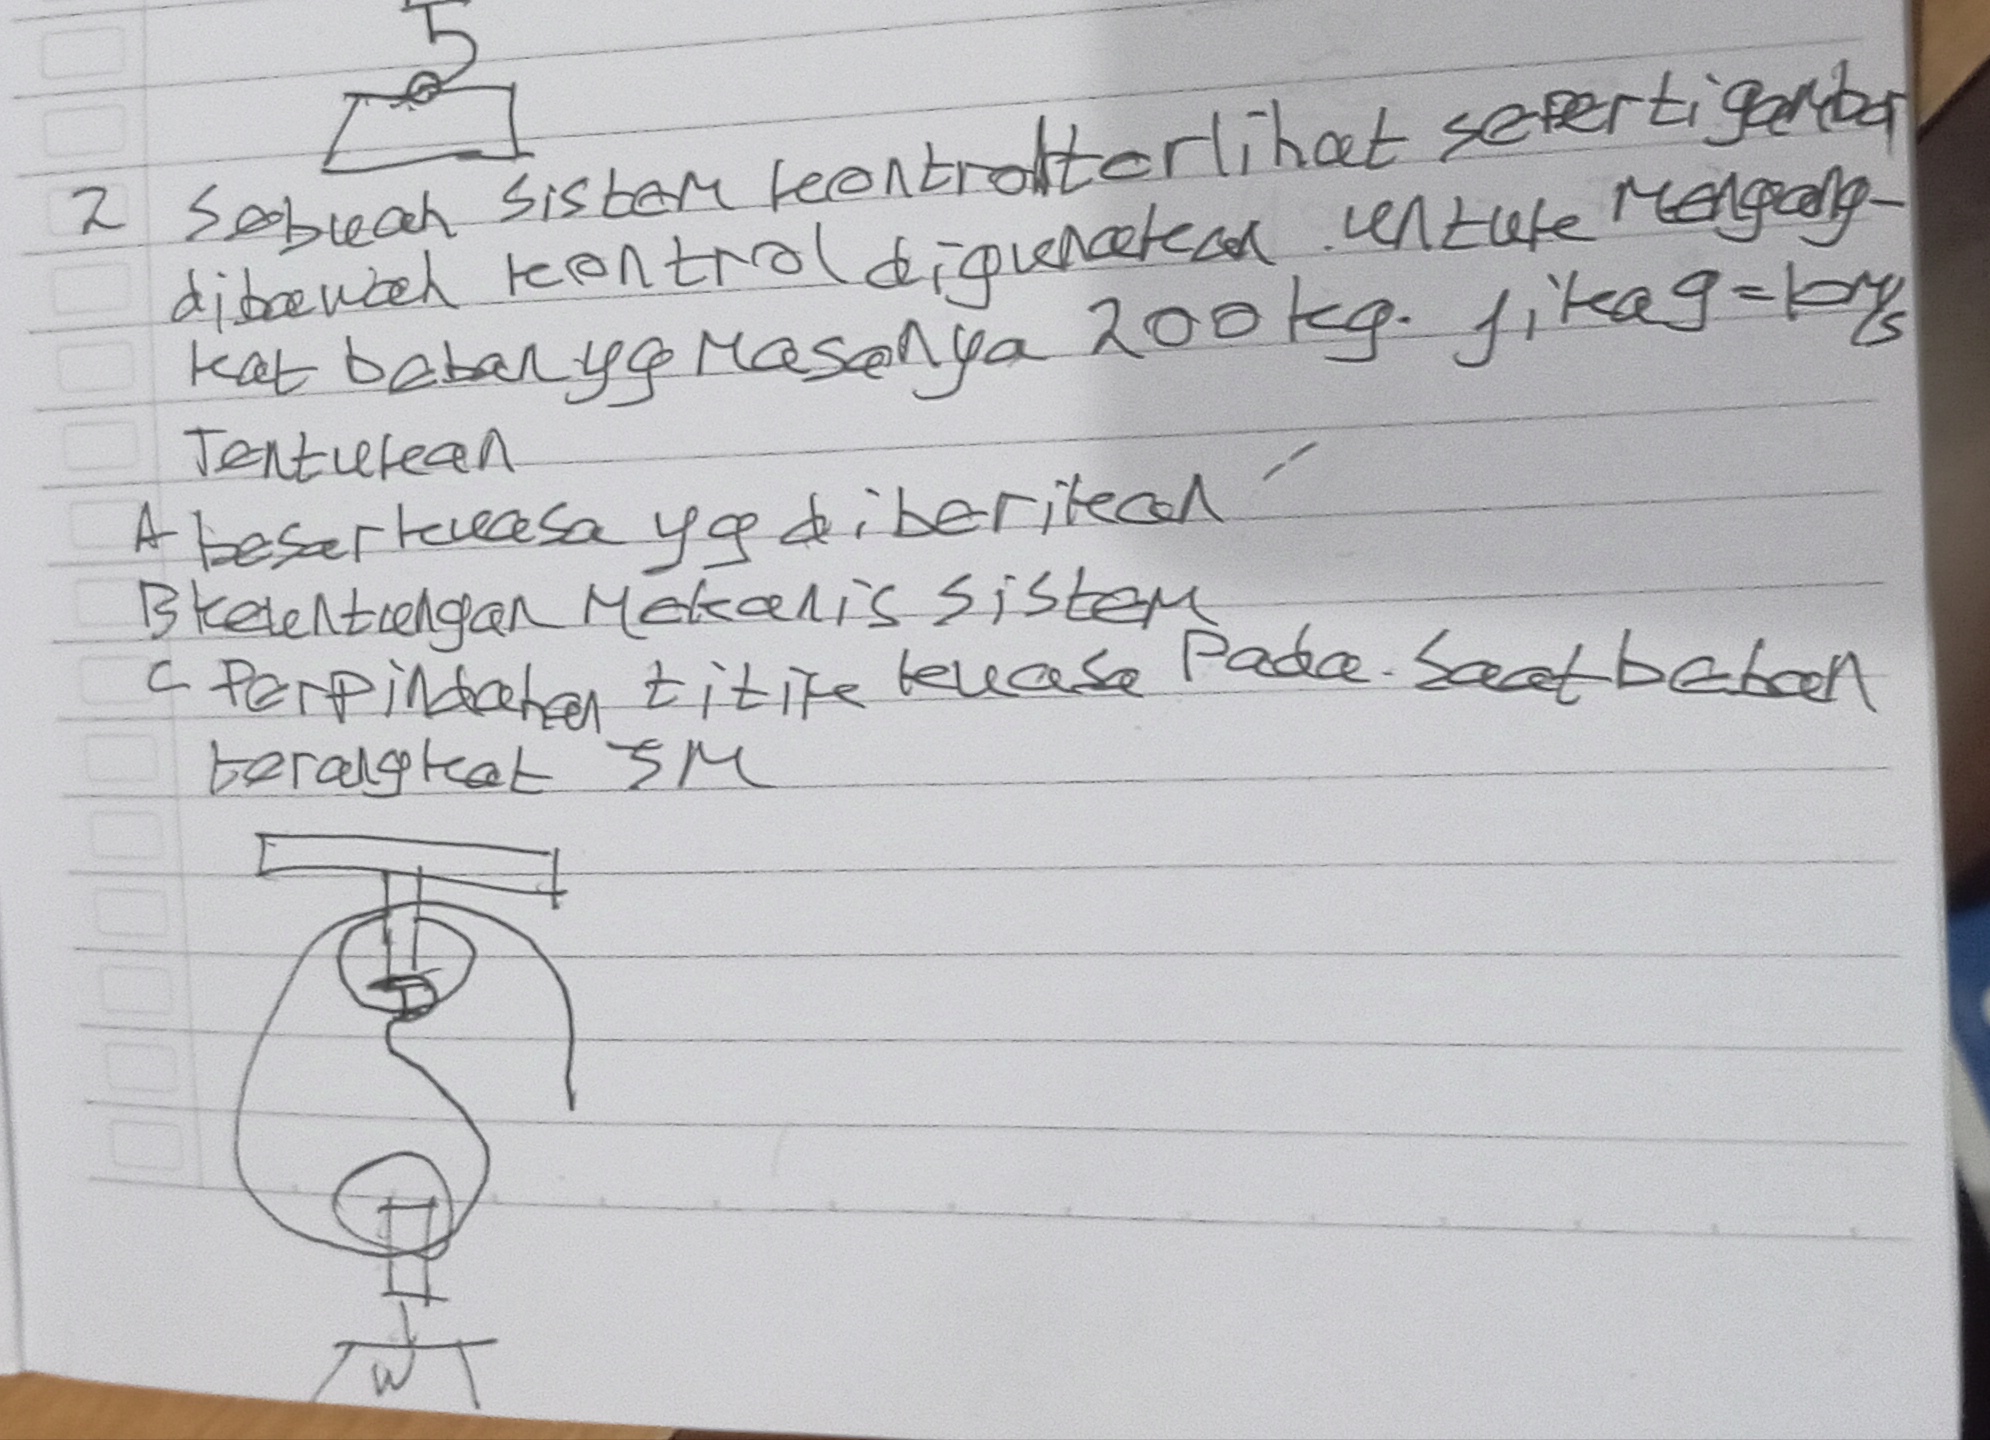 2 Sebuah sistem kontrol terlihat seperti gambar
dibawah kontrol digunakan untuk mengang-
kat beban yg masanya 200 kg. jika g = 10 m/s
Tentukan
A besar kuasa yg diberikan
B keuntungan mekanis sistem
C Perpindahan titik kuasa Pada saat beban
terangkat 5 M
W